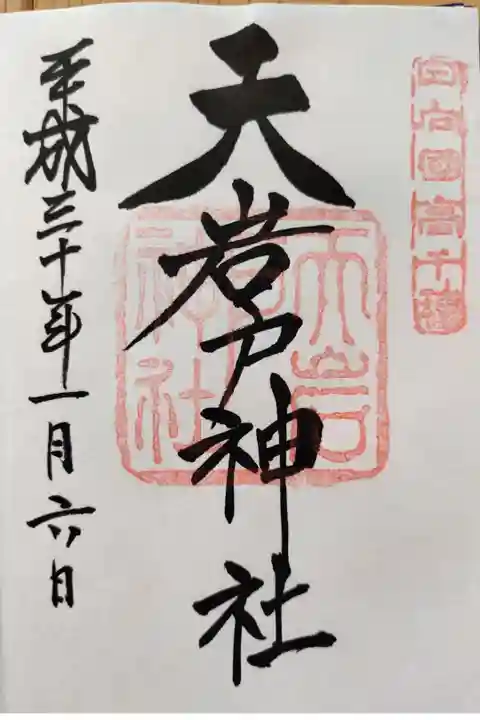 日向國高千穂
天岩戸神社
天岩戸神社
平成三十年一月六日